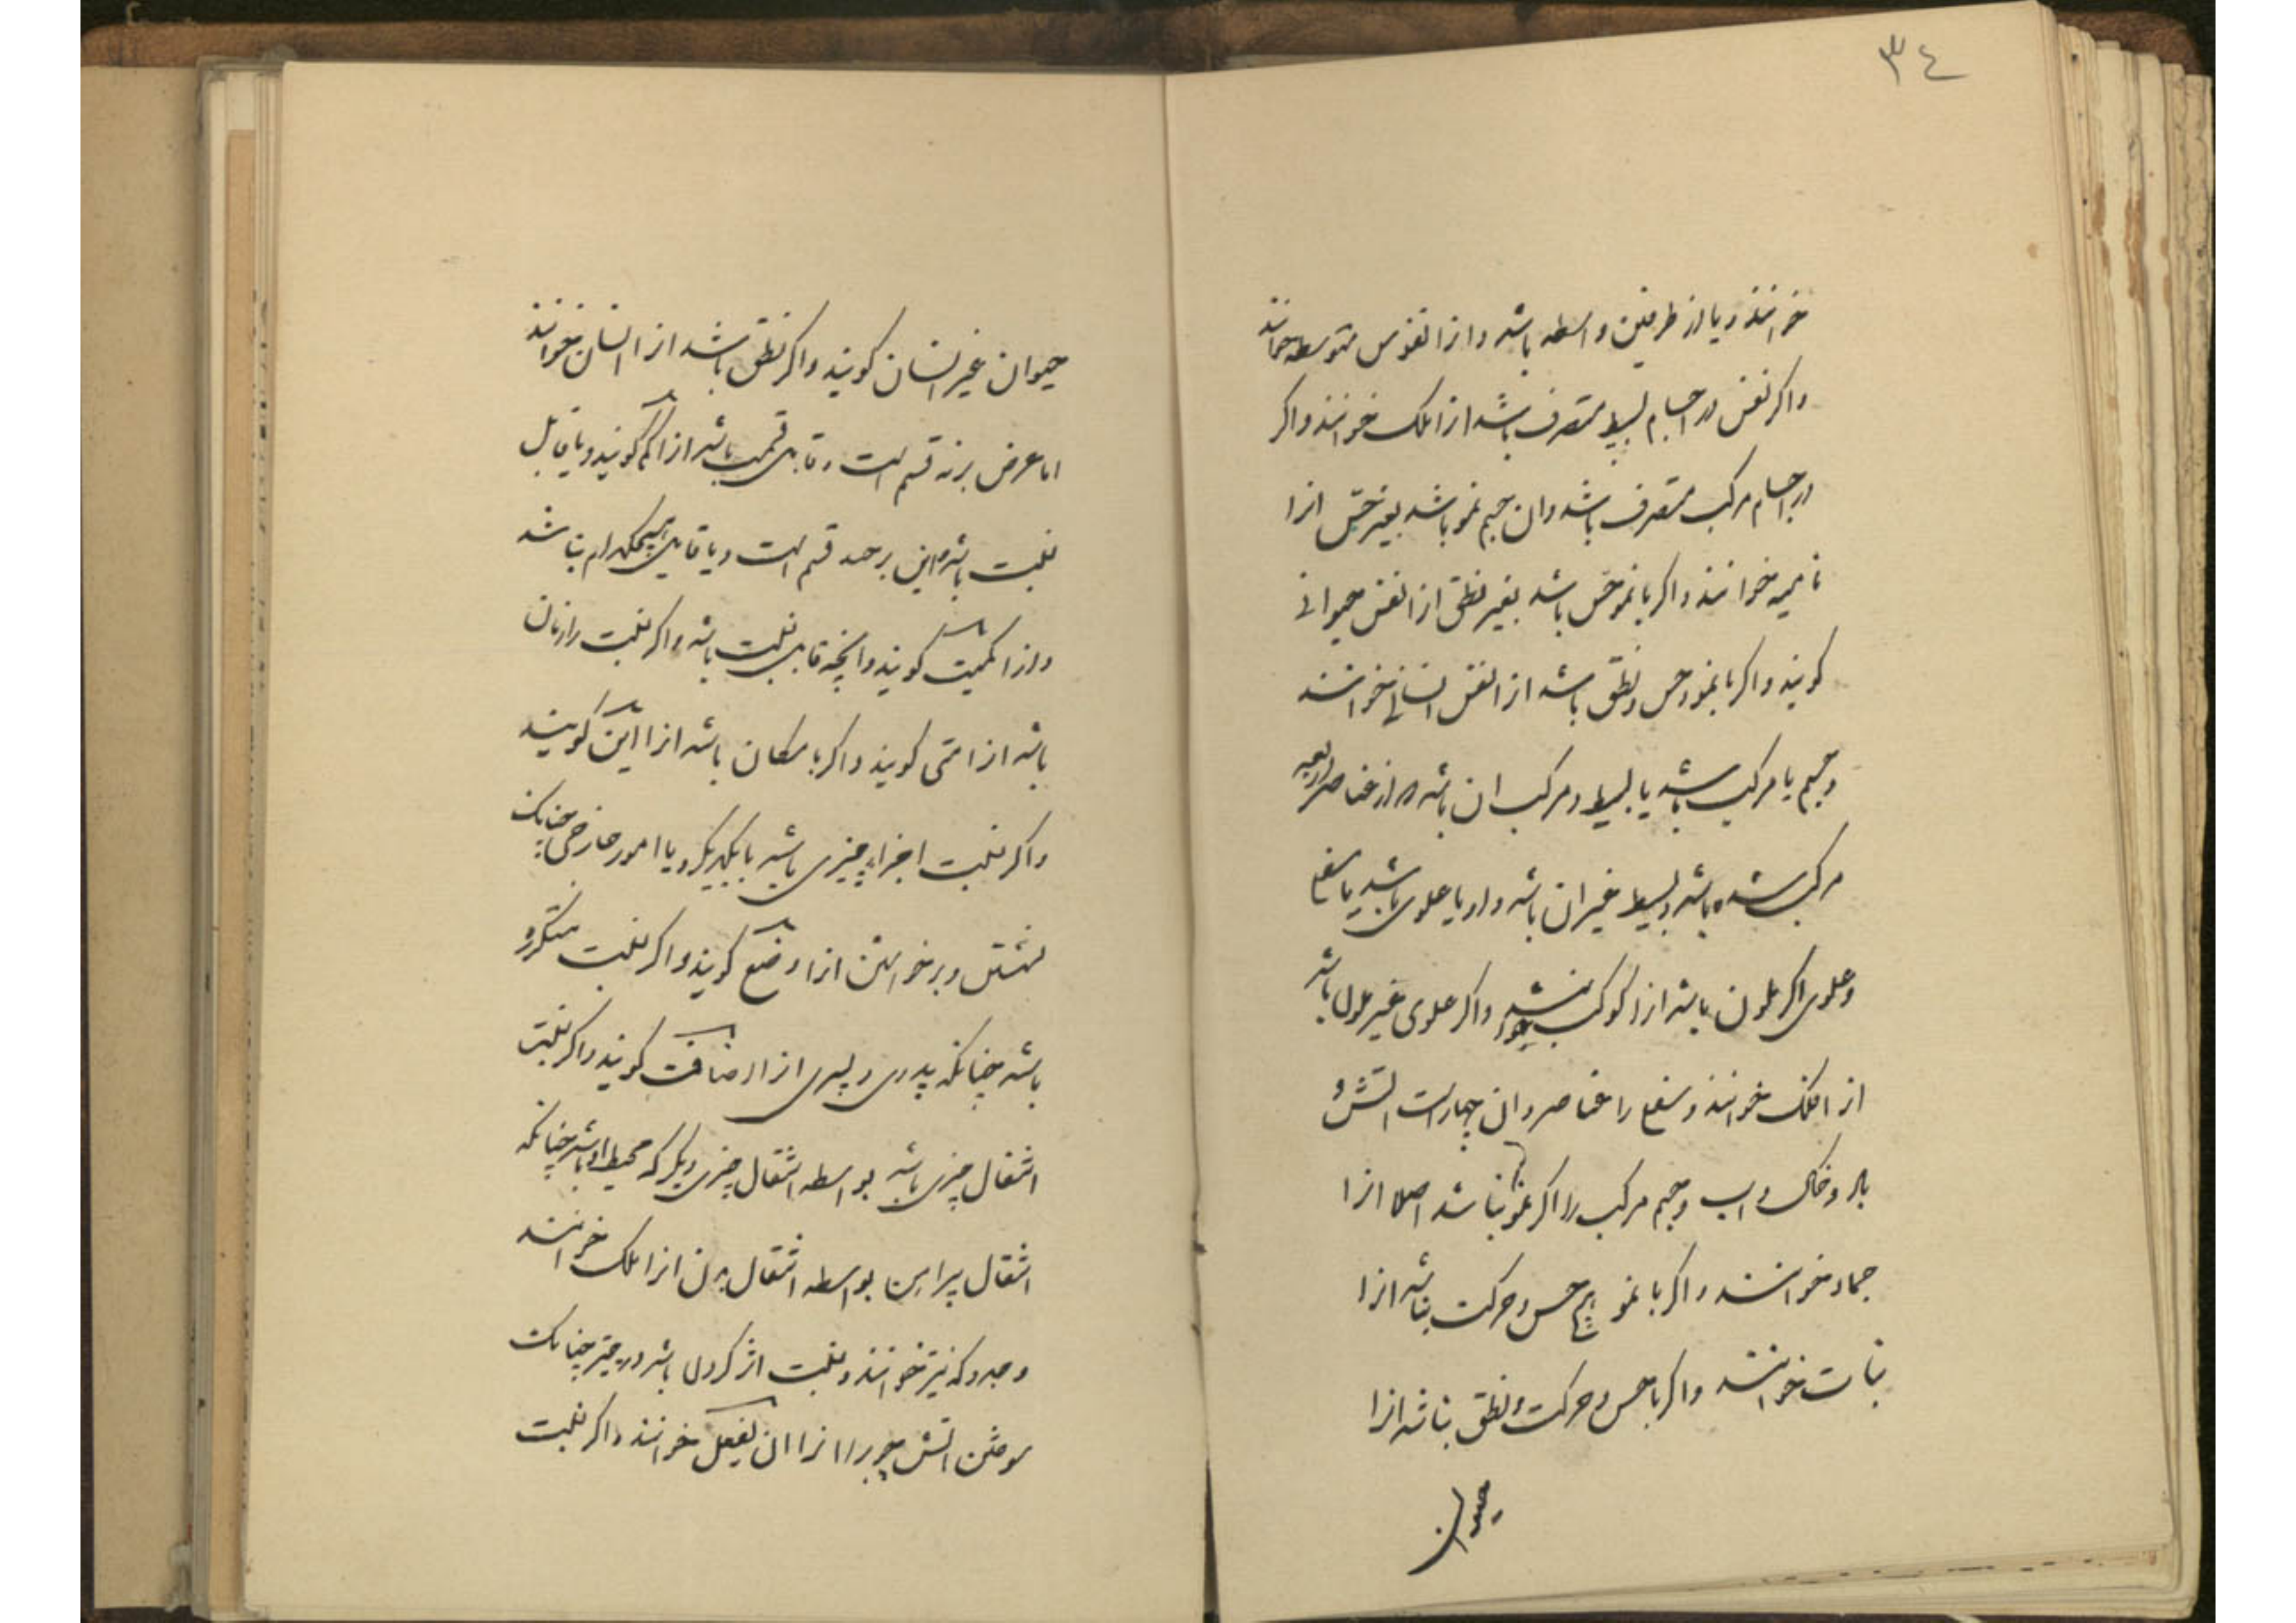 ٣٤
خوانند و یا از طرفین واسطه باشد و ازا نفوس متوسطه خوانند
واکر نفس در اجسام بسیط متصرف باشد ازا ملک خوانند واکر
در اجسام مرکب متصرف باشد وان جسم نمو باشد بغیر حس ازا
نامیه خوانند واکر با نمو حس باشد بغیر نطق ازا نفس حیوانی
کویند واکر با نمو و حس و نطق باشد ازا نفس انسانی خوانند
و جسم یا مرکب باشد یا بسیط و مرکب ان باشد که از عناصر اربعه
مرکب شده باشد و بسیط غیر ان باشد و او یا علوی باشد یا سفلی
و علوی اکر ملون باشد ازا کوکب واکر علوی غیر ملون باشد
ازا فلک خوانند و سفلی را عناصر و ان چهار است اتش و
باد و خاک و اب و جسم مرکب را اکر نمو نباشد اصلا ازا
جماد خوانند واکر با نمو حس و حرکت نباشد ازا
نبات خوانند واکر با حس و حرکت و نطق نباشد ازا
حیوان
حیوان غیر انسان کویند واکر نطق باشد ازا انسان خوانند
اما عرض بر نه قسم است قابل قسمت باشد ازا کم کویند و یا قابل
نسبت باشد و این بر قسم است و یا قابل هیچکدام نباشد
و ازا کیفیت کویند و انچه قابل نسبت باشد واکر نسبت را زمان
باشد ازا متی کویند واکر با مکان باشد ازا این کویند
واکر نسبت اجزاء چیزی باشد با یکدیکر و یا امور خارجی چنانک
نشستن و برخواستن ازا وضع کویند واکر نسبت متکرره
باشد چنانکه پدری و پسری ازا اضافت کویند واکر نسبت
انتقال چیزی باشد بواسطه انتقال چیزی دیکر که محیط او باشد چنانکه
انتقال پیراهن بواسطه انتقال بدن ازا ملک خوانند
و جده که نیز خوانند و نسبت اثر کردن باشد در چیز چنانک
سوختن اتش چوب را ازا ان یفعل خوانند واکر نسبت